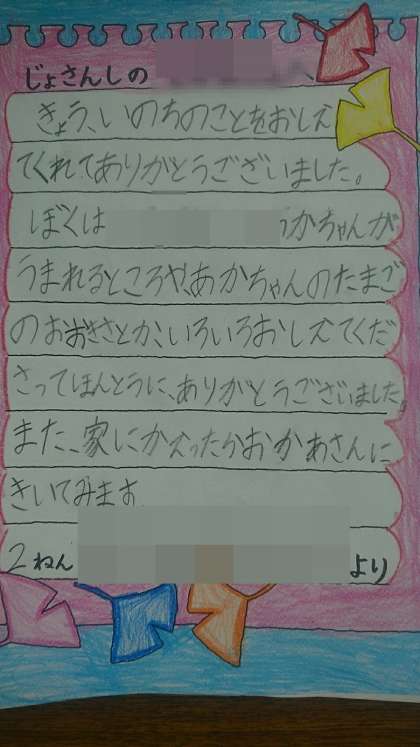 じょさんしの
きょう、いのちのことをおしえ
てくれてありがとうございました。
ぼくは かちゃんが
うまれるところや、あかちゃんのたまご
のおおきさとか、いろいろおしえてくだ
さってほんとうに、ありがとうございました。
また、家にかえったらおかあさんに
きいてみます
2ねん より